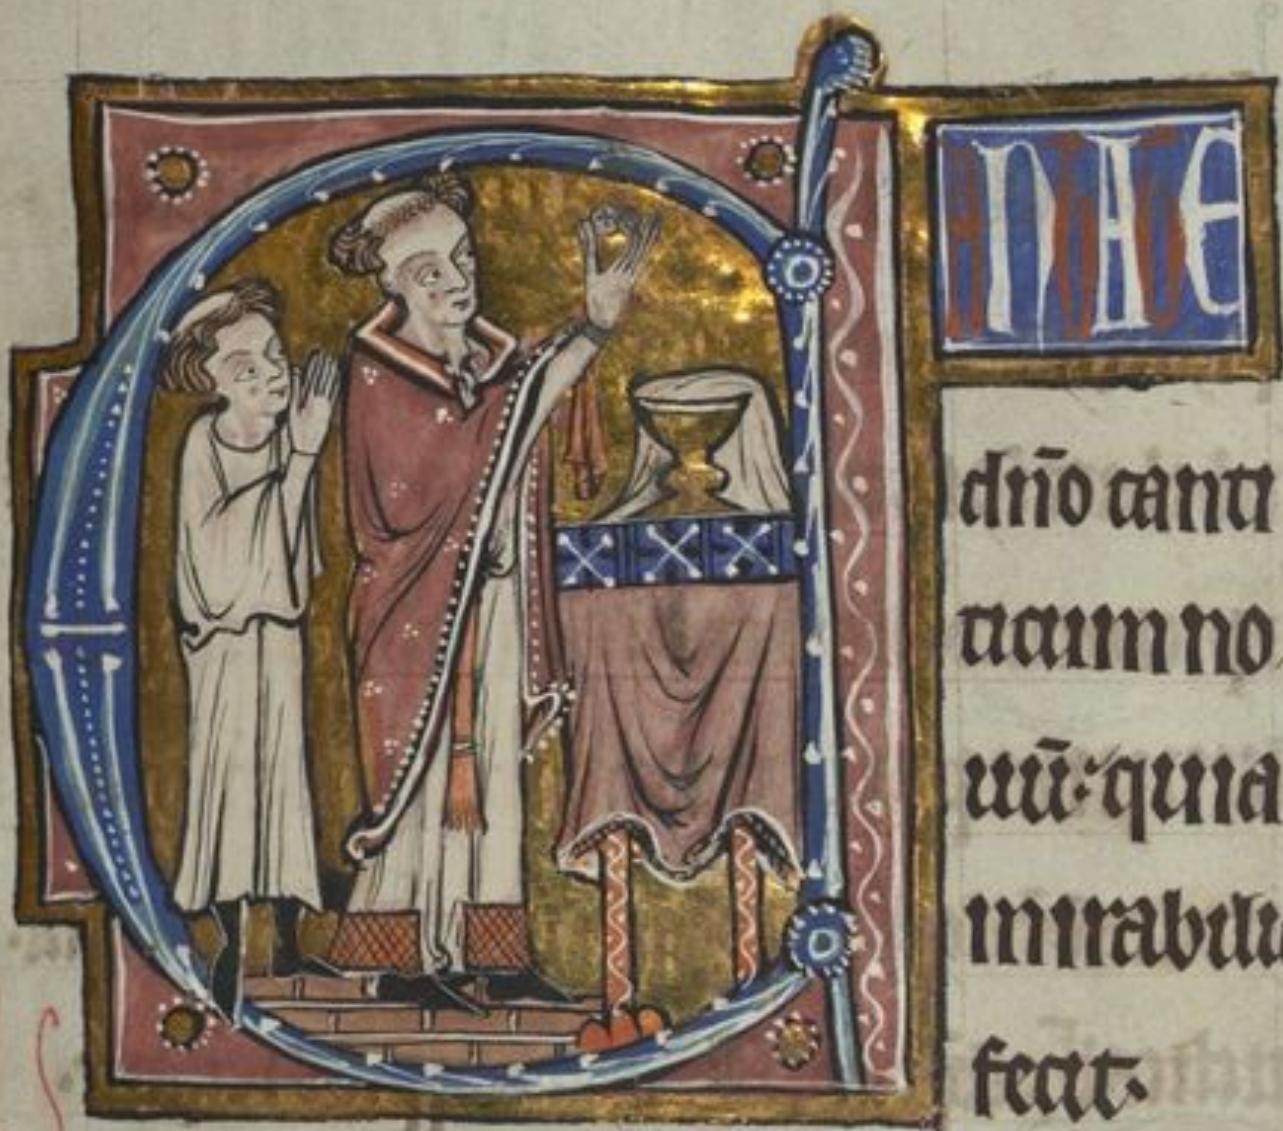 CANTATE
dn̄o canti
ticum no
uū: quia
mirabili
fecit.